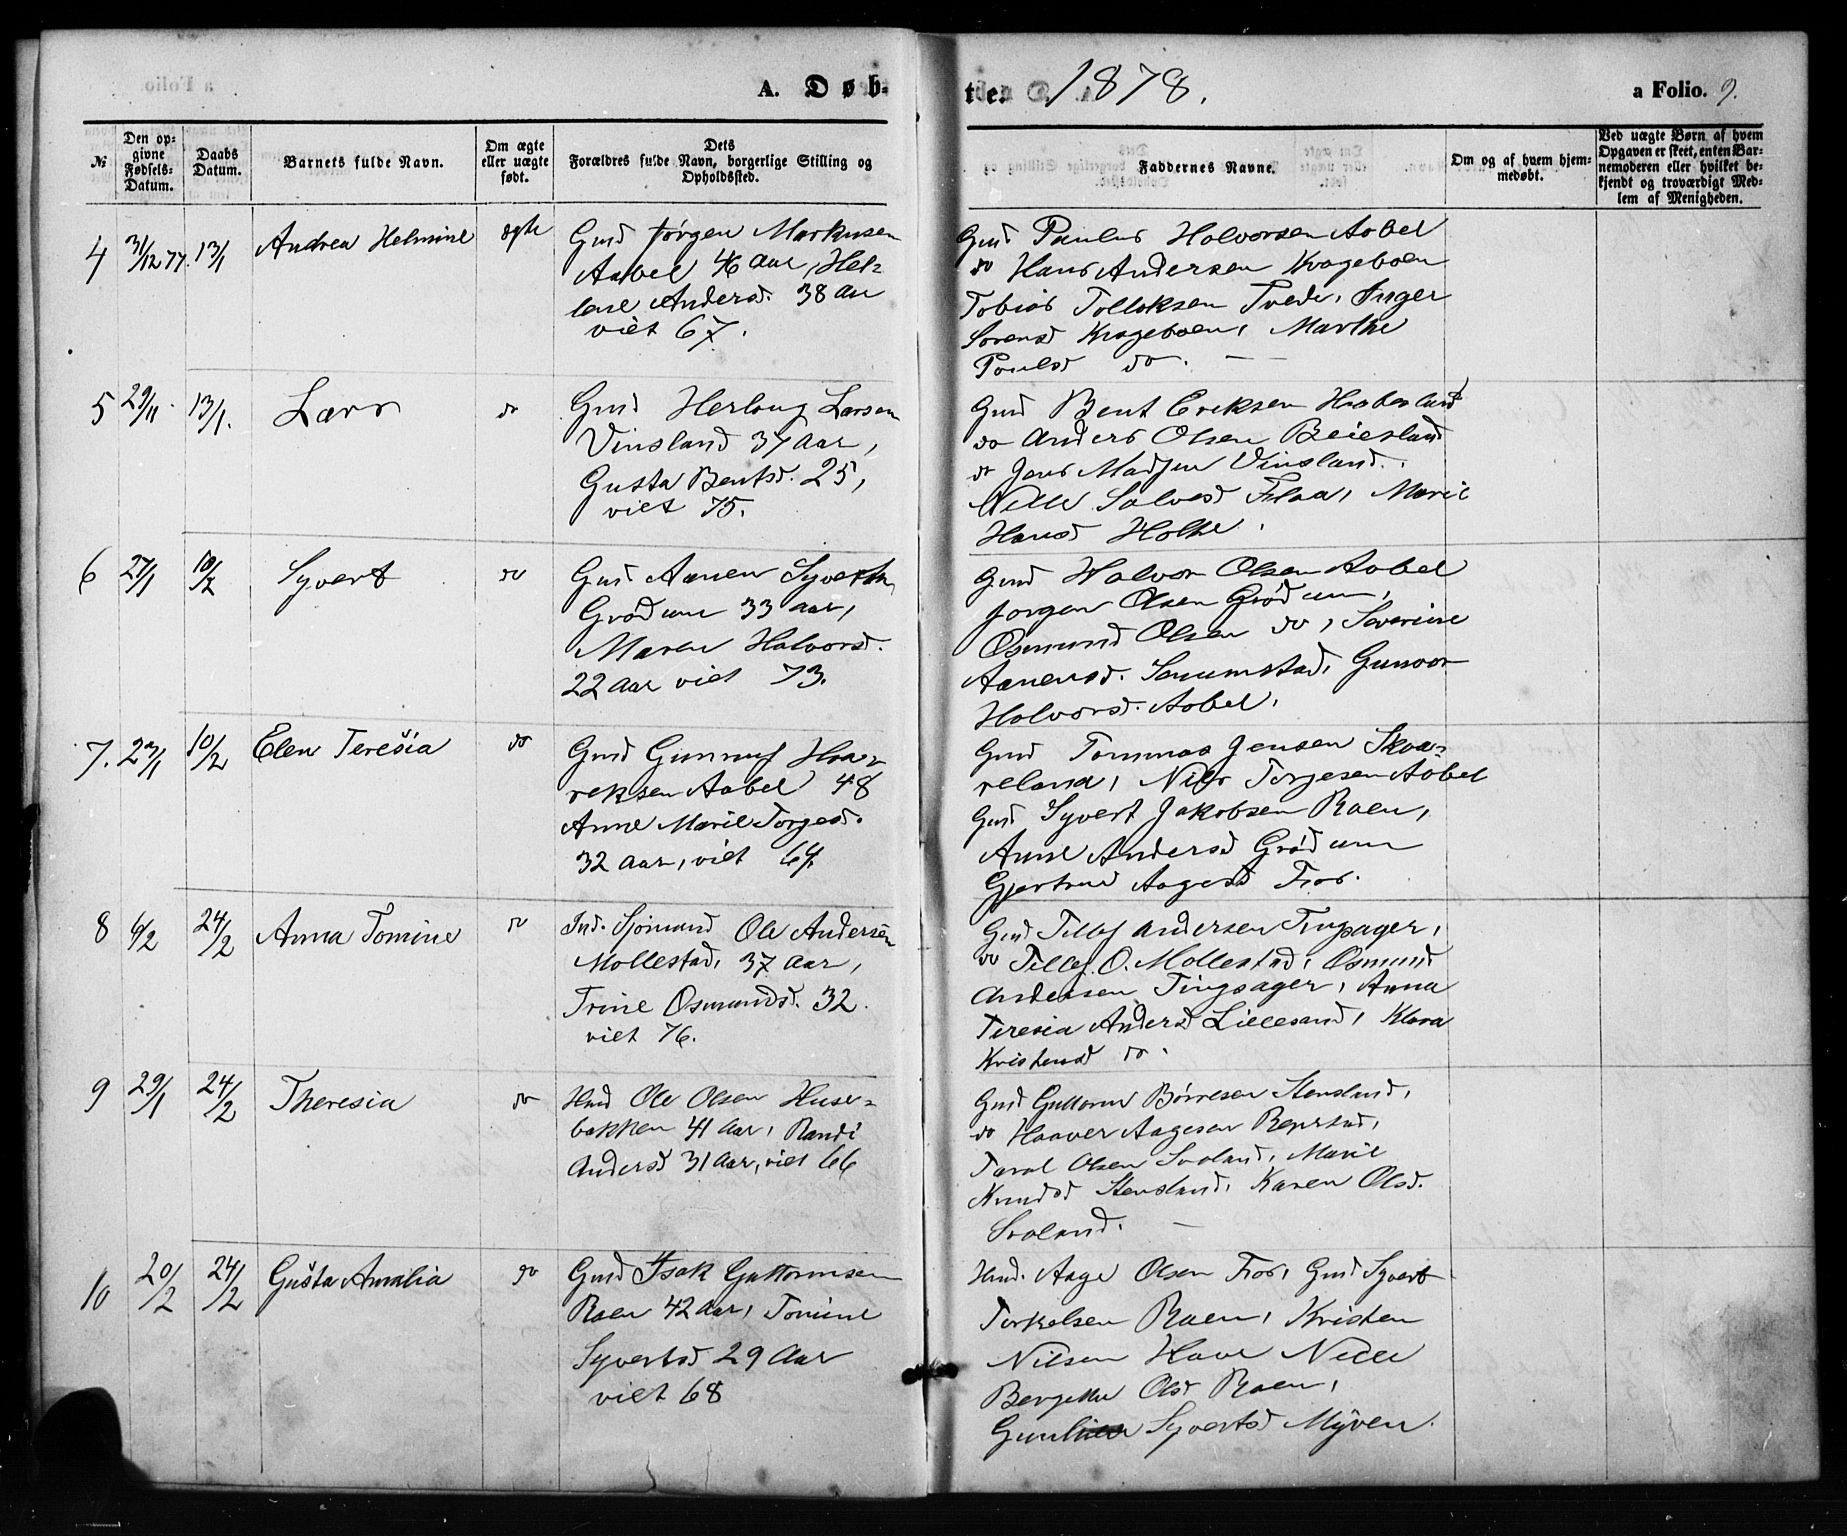 A. Døb-
te. 1878.
a Folio. 9.
№
Den op-
givne
Fødsels-
Datum.
Daabs
Datum.
Barnets fulde Navn.
Om ægte
eller uægte
født.
Dets
Forældres fulde Navn, borgerlige Stilling og
Opholdssted.
Faddernes Navne.
Om og af hvem hjem-
medøbt.
Ved uægte Børn af hvem
Opgaven er skeet, enten Bar-
nemoderen eller hvilket be-
kjendt og troværdigt Med-
lem af Menigheden.
4 31/12 77. 13/1 Andrea Helmine ægte
Gmd Jørgen Markusen
Aabel 46 Aar, Hel-
lene Andersd. 38 Aar
viet 67.
Gmd Paulus Halvorsen Aabel
do Hans Andersen Krageboen
Tobias Tolleksen Tvede, Inger
Sørensd Krageboen, Marthe
Paulsd do. —
5 29/11 13/1. Lars do
Gmd Herlaug Larsen
Vinsland 37 Aar,
Gusta Bentsd. 25,
viet 75.
Gmd Bent Eriksen Haaberland
do Anders Olsen Beiesland
do Jens Vinsland.
Nelle Salvesd Flaa, Marie
Hansd Holte.
6 27/1 10/2 Syvert do
Gmd Aanen Syvertsen
Grødum 33 Aar,
Maren Halvorsd.
22 Aar viet 73.
Gmd Halvor Olsen Aabel
Jørgen Olsen Grødum,
Osmund Olsen do, Severine
Aanensd. Senumstad, Gunvor
Halvorsd. Aabel.
7. 10/2 Elen Teresia do
Gmd Gunnuf Haa-
reksen Aabel 48
Anne Marie Torgesd.
32 Aar, viet
Gmd Tommas Jensen Skaa-
reland, Nils Torgesen Aabel
Gmd Syvert Jakobsen Raen,
Anne Andersd Grødum
Gjertrud Aagesd Fros.
8 6/2 24/2 Anna Tomine do
Ind. Sjømand Ole Andersen
Mollestad, 37 Aar,
Trine Osmundsd. 32.
viet 76.
Gmd Tellef Andersen Tingsager,
do Tellef O. Mollestad, Osmund
Andersen Tingsager, Anna
Teresia Andersd Lillesand, Klara
Kristensd do.
9 29/1 24/2 Theresia do
Hmd Ole Olsen Huse-
bakken 41 Aar, Randi
Andersd 31 Aar, viet 66
Gmd Guttorm Børresen Stensland,
do Haaver Aagesen Repstad,
Taral Olsen Svaland, Marie
Knudsd Stensland, Karen Olsd.
Svaland. —
10 20/2 24/2 Gusta Amalia do
Gmd Isak Guttormsen
Raen 42 Aar, Tomine
Syvertsd 29 Aar
viet 68
Hmd. Aage Olsen Fros, Gmd Syvert
Terkelsen Raen, Kristen
Nilsen Have Nelle
Bergette Olsd Raen,
Syvertsd Myren.